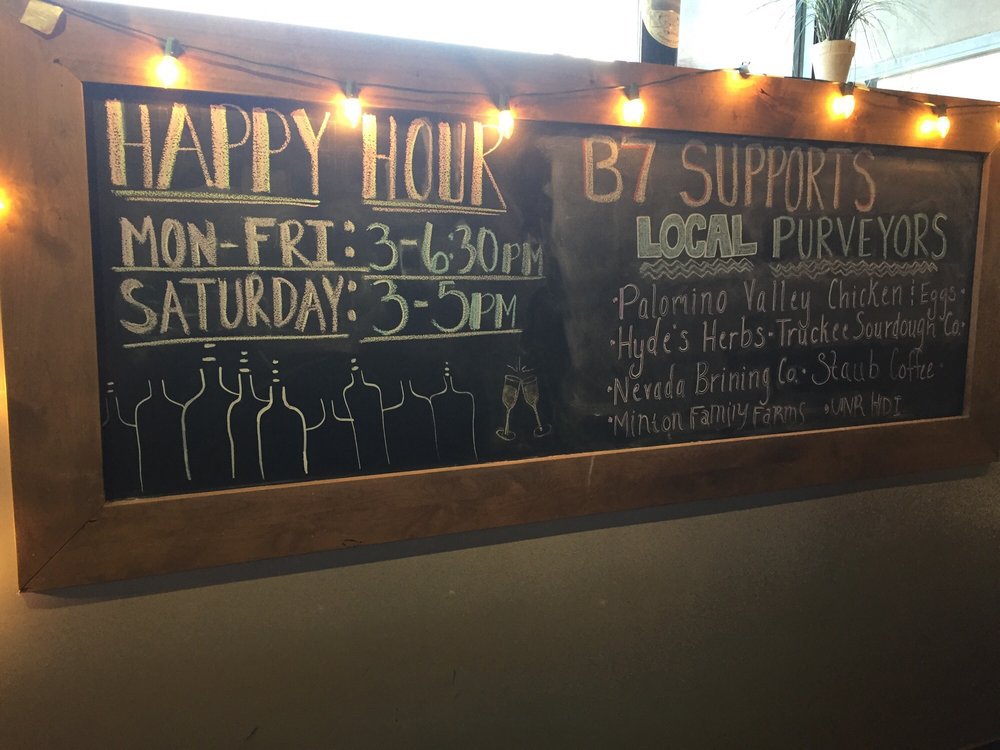 HAPPY HOUR
MON-FRI: 3-6:30PM
SATURDAY: 3-5PM
B7 SUPPORTS
LOCAL PURVEYORS
·Palomino Valley Chicken & Eggs·
·Hyde's Herbs·Truckee Sourdough Co·
·Nevada Brining Co· Staub Coffee·
·Minton Family Farms ·UNR HDI